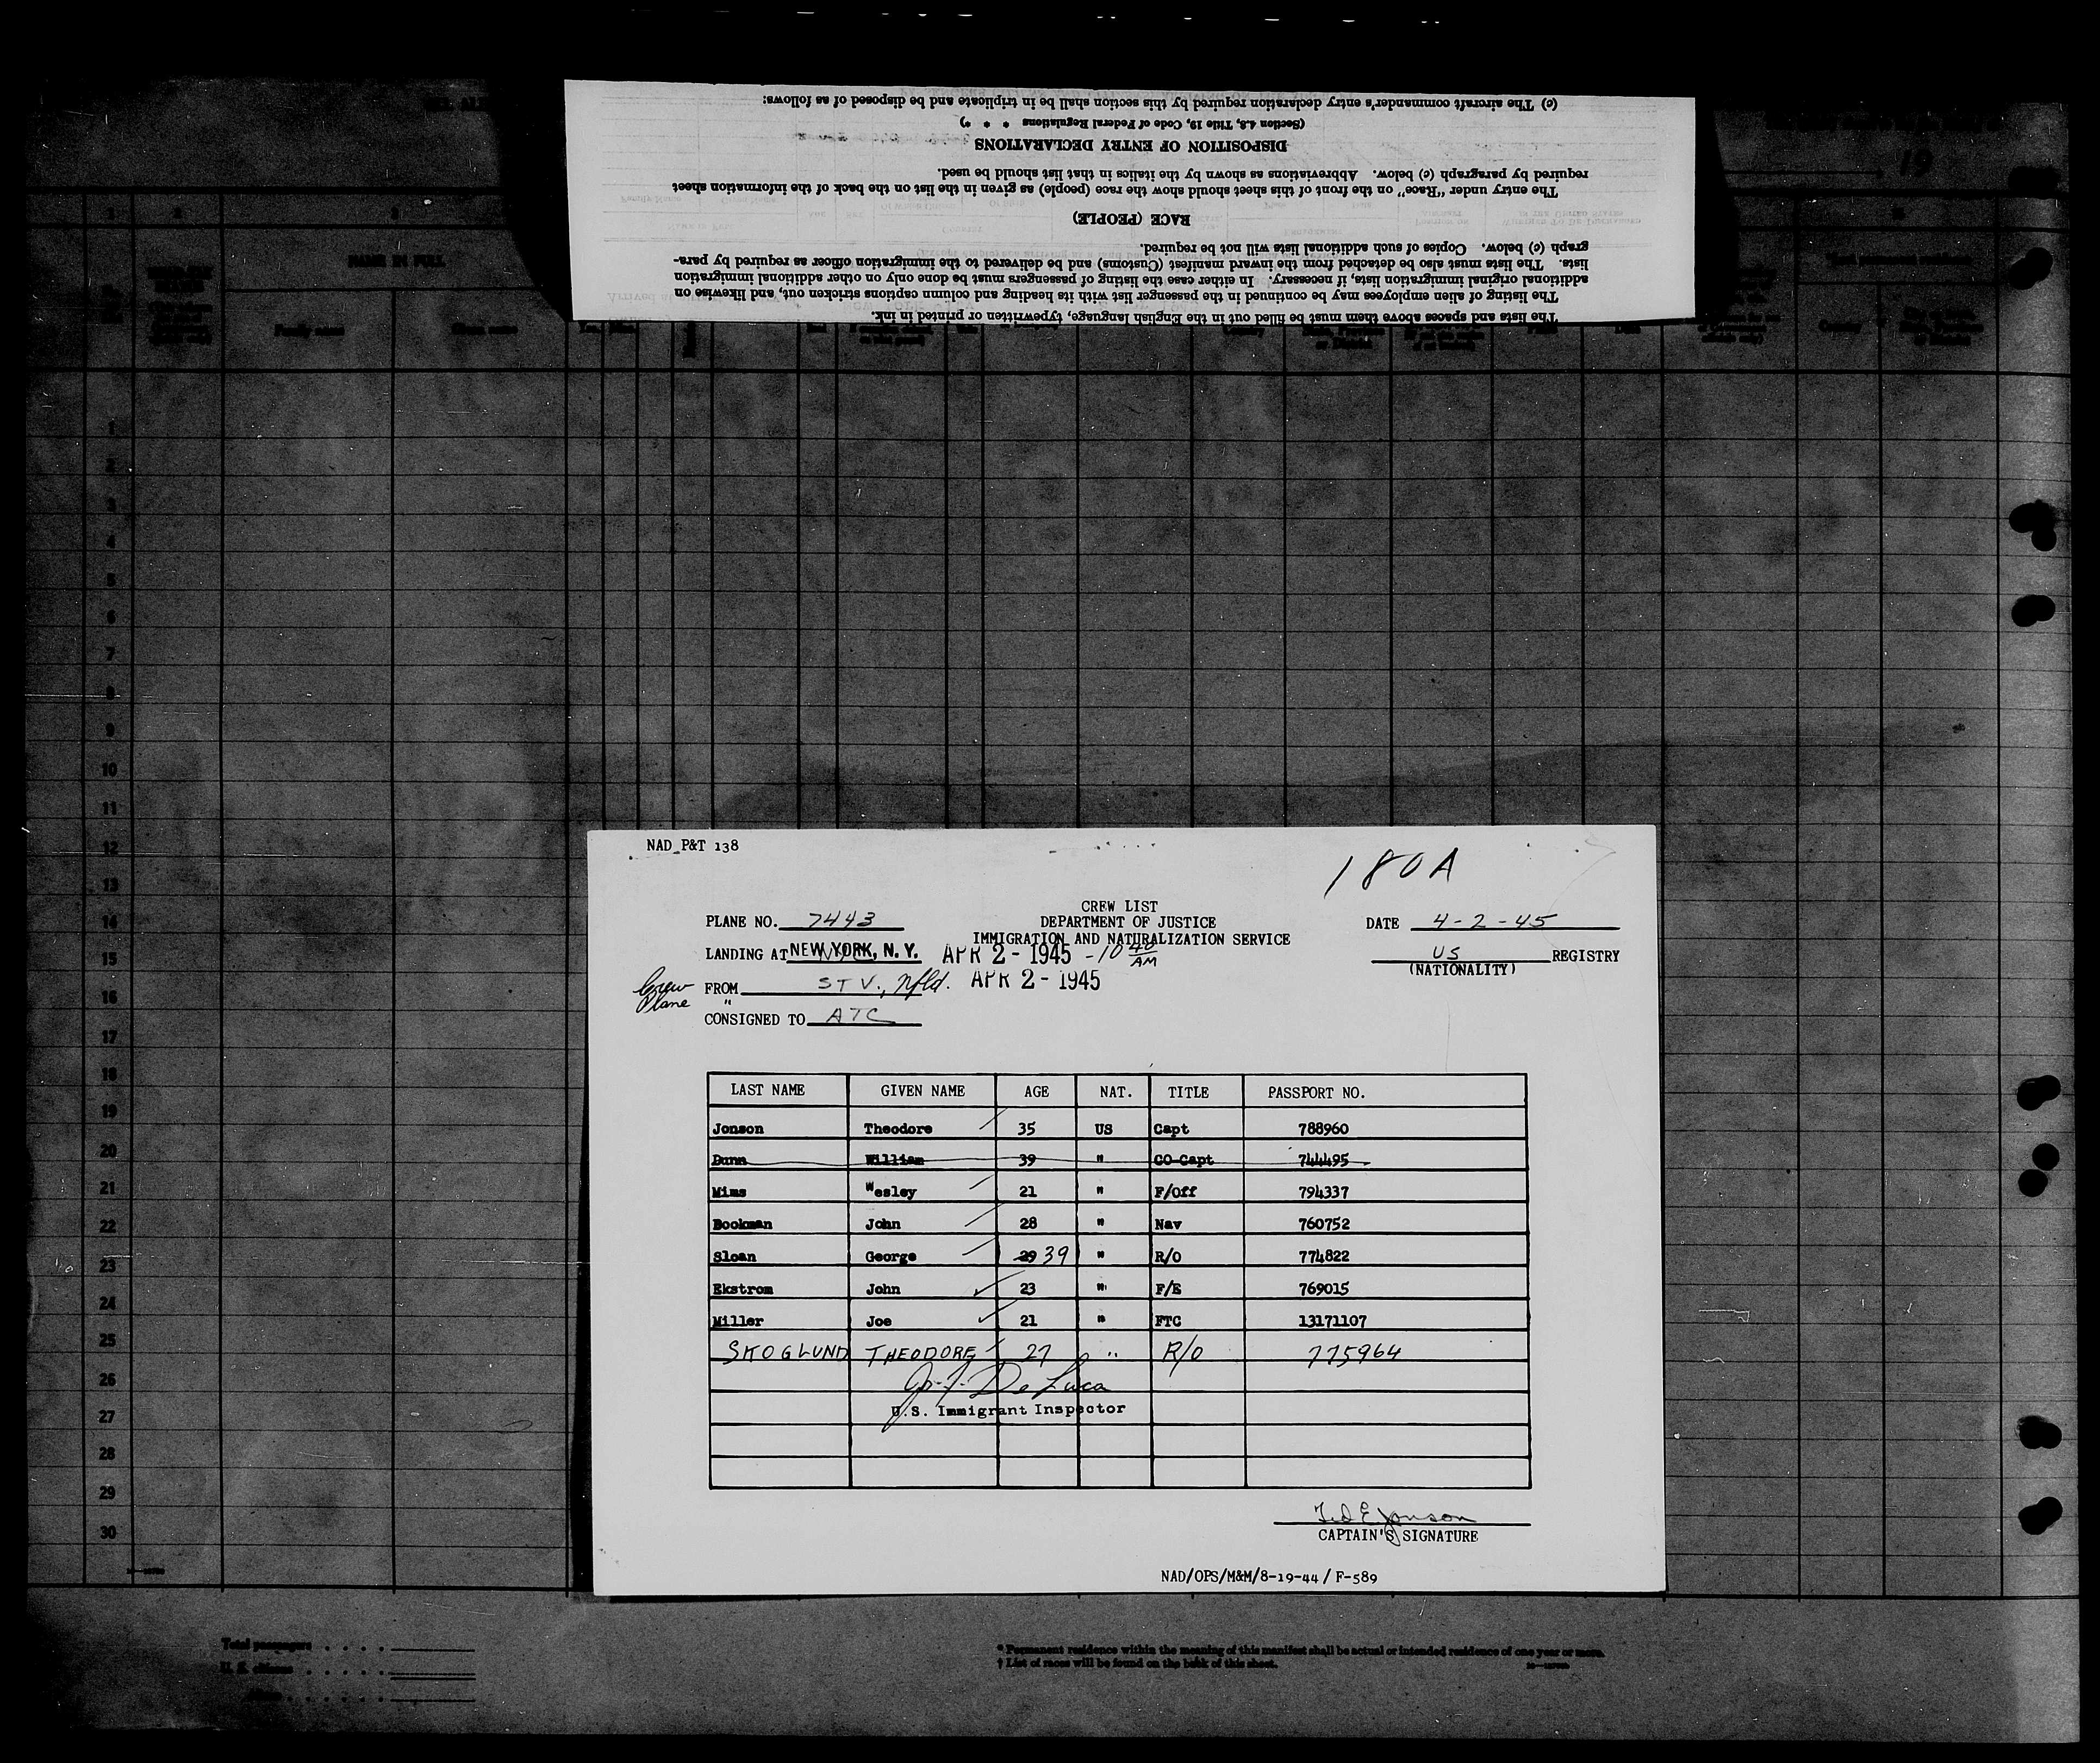 (c) The aircraft commander's entry declaration required by this section shall be in triplicate and be disposed of as follows:
(Section 4.8, Title 19, Code of Federal Regulations * * *)
DISPOSITION OF ENTRY DECLARATIONS
required by paragraph (c) below. Abbreviations as shown by the italics in that list should be used.
The entry under "Race" on the front of this sheet should show the race (people) as given in the list on the back of the information sheet
RACE (PEOPLE)
graph (c) below. Copies of such additional lists will not be required.
lists. The lists must also be detached from the inward manifest (Customs) and be delivered to the immigration officer as required by para-
additional original immigration lists, if necessary. In either case the listing of passengers must be done only on other additional immigration
The listing of alien employees may be continued in the passenger list with its heading and column captions stricken out, and likewise on
The lists and spaces above them must be filled out in the English language, typewritten or printed in ink.
19
1 2 3
NAME IN FULL
Family name Given name
1
2
3
4
5
6
7
8
9
10
11
12
13
14
15
16
17
18
19
20
21
22
23
24
25
26
27
28
29
30
NAD P&T 138
180A
CREW LIST
PLANE NO. 7443 DEPARTMENT OF JUSTICE DATE 4-2-45
IMMIGRATION AND NATURALIZATION SERVICE
LANDING AT NEW YORK, N. Y. APR 2 - 1945 - 10 40 AM US REGISTRY
(NATIONALITY)
Crew FROM STV., Nfld. APR 2 - 1945
Plane "
CONSIGNED TO ATC
LAST NAME GIVEN NAME AGE NAT. TITLE PASSPORT NO.
Jonson Theodore 35 US Capt 788960
Dunn William 39 " CO-Capt 744495
Mims Wesley 21 " F/Off 794337
Bookman John 28 " Nav 760752
Sloan George 29 39 " R/O 774822
Ekstrom John 23 " F/E 769015
Miller Joe 21 " FTC 13171107
SKOGLUND THEODORE 27 " R/O 775964
Jo. J. De Luca
U.S. Immigrant Inspector
Ted E Jonson
CAPTAIN'S SIGNATURE
NAD/OPS/M&M/8-19-44 / F-589
Total passengers . . . .
U. S. citizens . . . . .
* Permanent residence within the meaning of this manifest shall be actual or intended residence of one year or more.
† List of races will be found on the back of this sheet.